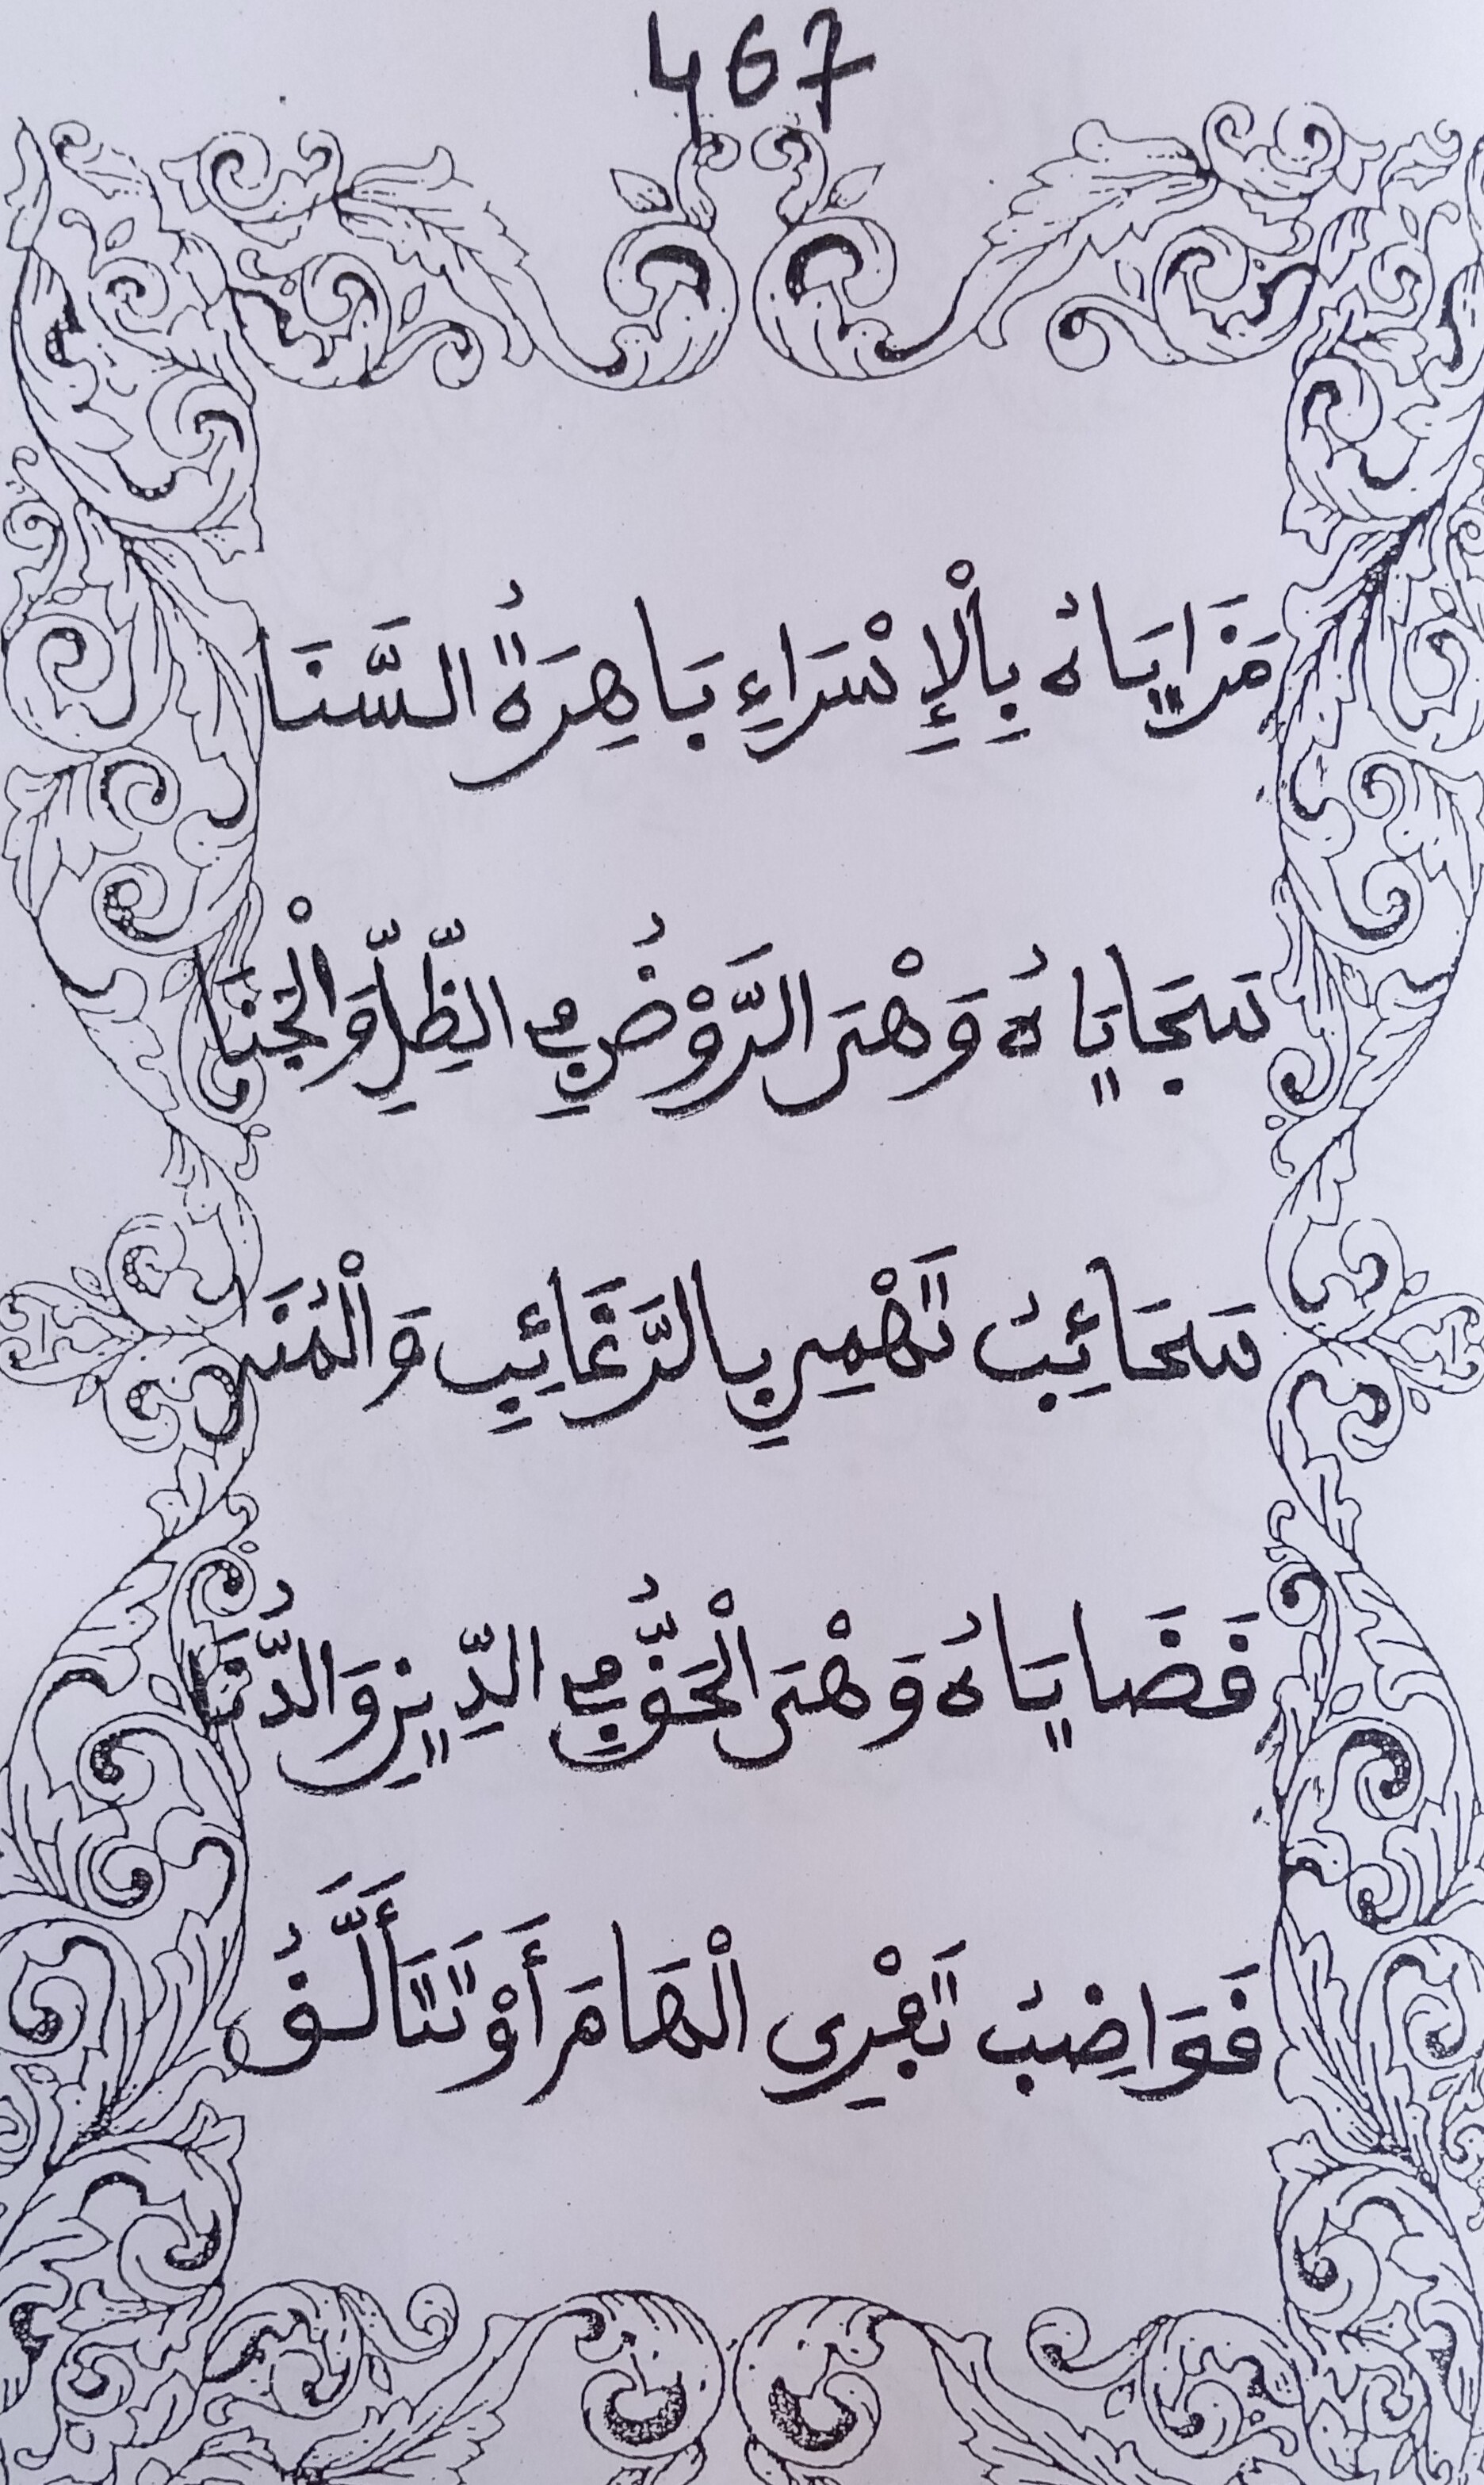 467
مَزَايَاهُ بِالْإِسْرَاءِ بَاهِرَةُ السَّنَا
سَجَايَاهُ وَهْىَ الرَّوْضُ فِي الظِّلِّ وَالْجَنَا
سَحَائِبُ تَهْمِي بِالرَّغَائِبِ وَالْمُنَى
قَضَايَاهُ وَهْىَ الْحَقُّ فِي الدِّينِ وَالدُّنَا
قَوَاضِبُ تَفْرِي الْهَامَ أَوْ تَتَأَلَّقُ